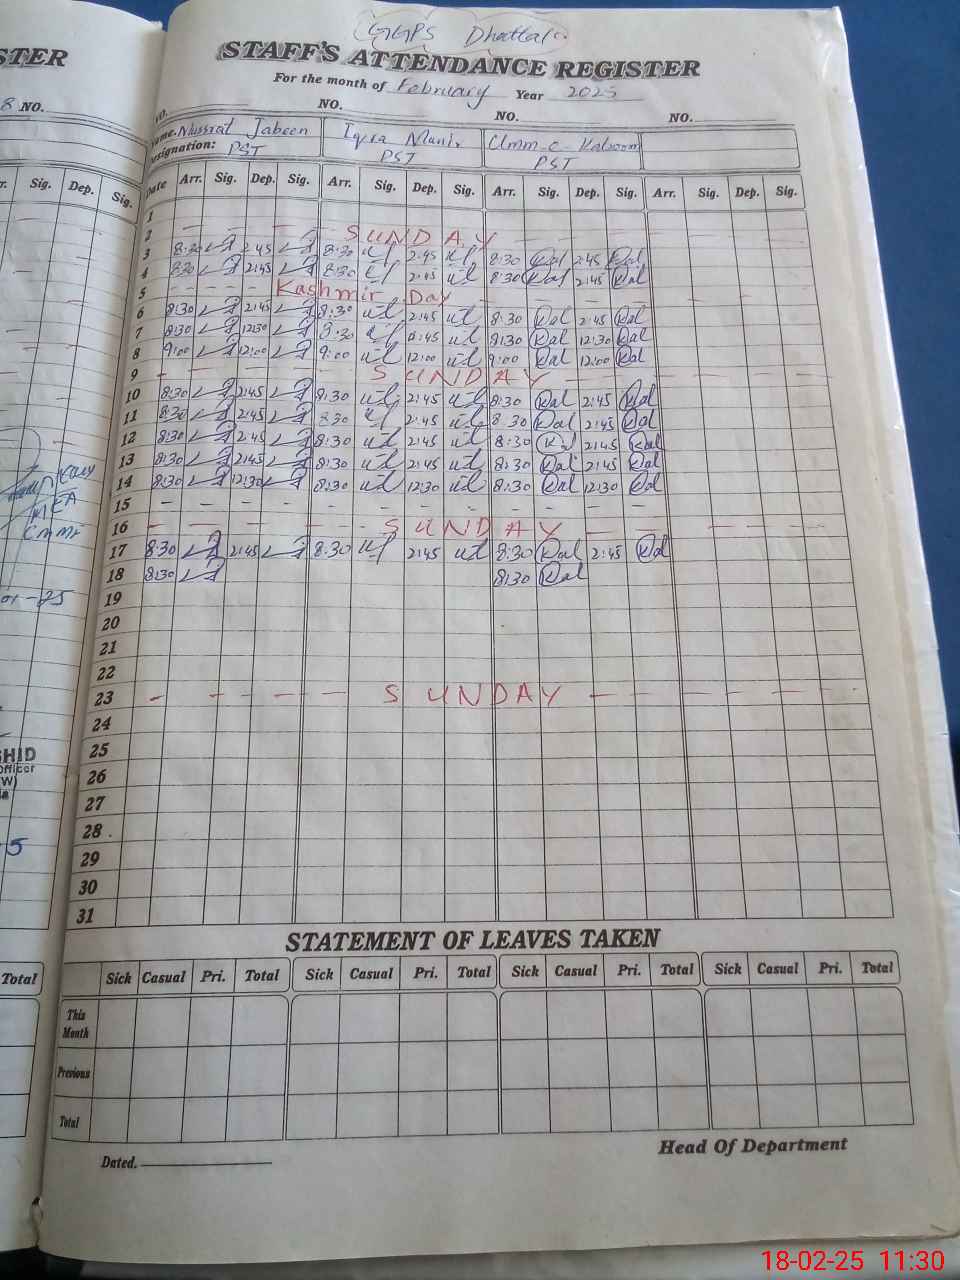 GGPS Dhattal
STAFF'S ATTENDANCE REGISTER
For the month of February Year 2025
NO. NO. NO. NO.
Name. Nussrat Jabeen Iqra Munir Umm-e-Kalsoom
Designation: PST PST PST
Date Arr. Sig. Dep. Sig. Arr. Sig. Dep. Sig. Arr. Sig. Dep. Sig. Arr. Sig. Dep. Sig.
1
2 SUNDAY
3 8:30 2:45 8:30 2:45 8:30 Kal 2:45 Kal
4 8:30 2:45 8:30 2:45 8:30 Kal 2:45 Kal
5 Kashmir Day
6 8:30 2:45 8:30 2:45 8:30 Kal 2:45 Kal
7 8:30 12:30 8:30 8:30 Kal 12:30 Kal
8 9:00 12:00 9:00 12:00 9:00 Kal 12:00 Kal
9 SUNDAY
10 8:30 2:45 8:30 2:45 8:30 Kal 2:45 Kal
11 8:30 2:45 8:30 2:45 8:30 Kal 2:45 Kal
12 8:30 2:45 8:30 2:45 8:30 Kal 2:45 Kal
13 8:30 2:45 8:30 2:45 8:30 Kal 2:45 Kal
14 8:30 12:30 8:30 12:30 8:30 Kal 12:30 Kal
15 - - - - - - - - - - - -
16 SUNDAY
17 8:30 2:45 8:30 2:45 8:30 Kal 2:45 Kal
18 8:30 8:30 Kal
19
20
21
22
23 SUNDAY
24
25
26
27
28
29
30
31
STATEMENT OF LEAVES TAKEN
Sick Casual Pri. Total Sick Casual Pri. Total Sick Casual Pri. Total Sick Casual Pri. Total
This Month
Previous
Total
Head Of Department
Dated.
STER
8 NO.
Sig. Dep. Sig.
01-25
SHID
Officer
(W)
5
Total
18-02-25 11:30